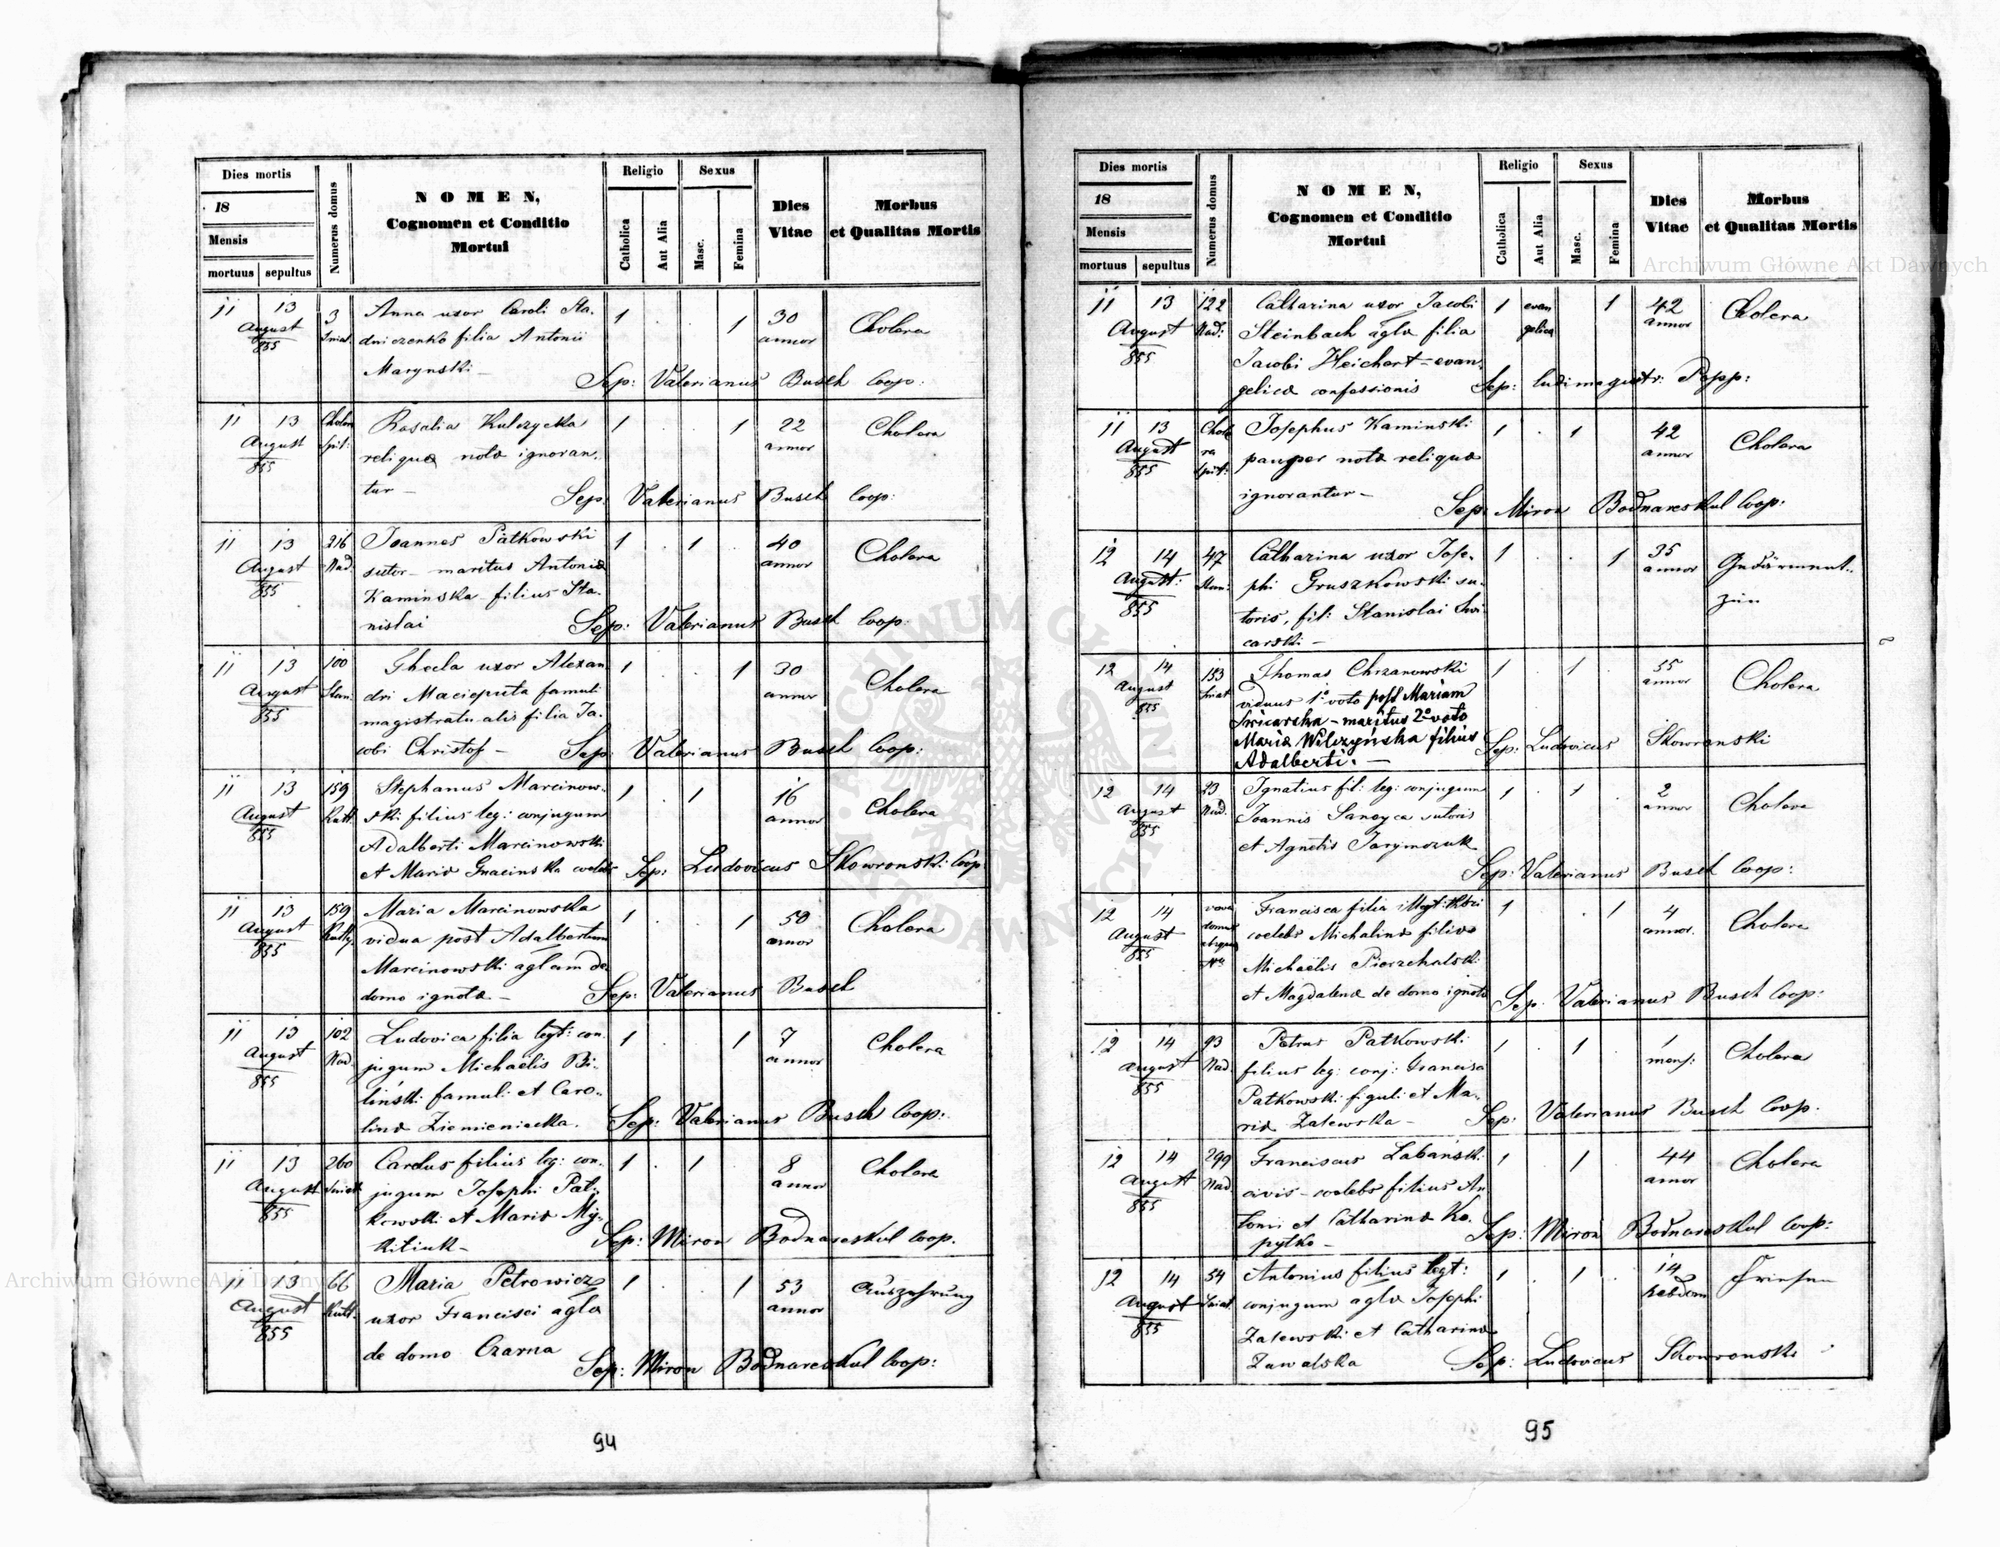 Dies mortis
18
Mensis
mortuus sepultus
Numerus domus
NOMEN,
Cognomen et Conditio
Mortui
Religio
Catholica
Aut Alia
Sexus
Masc.
Femina
Dies
Vitae
Morbus
et Qualitas Mortis
11 13 3 Anna uxor Caroli Sta- 1 . . 1 30 Cholera
August dniczenko filia Antonii annor
855 Marynski –
Sep: Valerianus Busch Coop:
11 13 Rosalia Kulczycka 1 . . 1 22 Cholera
August Spit: reliqua nota ignoran- annor
855 tur –
Sep: Valerianus Busch Coop:
11 13 216 Joannes Patkowski 1 . 1 . 40 Cholera
August Nad. sutor – maritus Antonia annor
855 Kaminska – filius Sta-
nislai
Sep: Valerianus Busch Coop:
11 13 100 Thecla uxor Alexan- 1 . . 1 30 Cholera
August Stani: dri famuli annor
855 magistratualis filia Ja-
cobi Christof –
Sep: Valerianus Busch Coop:
11 13 159 Stephanus Marcinow- 1 . 1 16 Cholera
August Kutt. ski filius leg: conjugum annor
855 Adalberti Marcinowski
et Maria Gnacinska coelebs
Sep: Ludovicus Skowronski Coop:
11 13 159 Maria Marcinowska 1 . . 1 50 Cholera
August vidua post Adalbertum annor
855 Marcinowski aglam de
domo ignota –
Sep: Valerianus Busch
11 13 102 Ludovica filia legt: con- 1 . . 1 7 Cholera
August Nad. jugum Michaelis Bi- annor
855 linski famuli et Caro-
lina Ziemieniacka.
Sep: Valerianus Busch Coop:
11 13 260 Carolus filius leg: con- 1 . 1 8 Cholera
August Sniat. jugum Josephi Pat- annor
855 kowski et Maria
Sep: Miron Bodnareskul Coop.
11 13 66 Maria Petrowicz 1 . . 1 53 Auszehrung
August Kutt. uxor Francisci agla annor
855 de domo Czarna
Sep: Miron Bodnareskul Coop:
94
Dies mortis
18
Mensis
mortuus sepultus
Numerus domus
NOMEN,
Cognomen et Conditio
Mortui
Religio
Catholica
Aut Alia
Sexus
Masc.
Femina
Dies
Vitae
Morbus
et Qualitas Mortis
11 13 122 Catharina uxor Jacobi 1 evan 1 42 Cholera
August Nad: Steinbach agla filia gelica annor
855 Jacobi Heichert – evan-
gelica confessionis
Sep: ludimagistr: Popp:
11 13 Chole Josephus Kaminski 1 . 1 42 Cholera
August ra pauper nota reliqua annor
855 Spit: ignorantur –
Sep: Miron Bodnareskul Coop:
12 14 47 Catharina uxor Jose- 1 . . 1 35
August: Stani: phi Gruszkowski su- annor
855 toris, fil: Stanislai Swi-
carski –
12 14 153 Thomas Chrzanowski 1 . 1 . 55 Cholera
August Sniat viduus 1o voto post Mariam annor
855 Swicarska – maritus 2o voto
Maria Wilczyńska filius
Adalberti. –
Sep: Ludovicus Skowronski
12 14 23 Ignatius fil: leg: conjugum 1 . 1 . 2 Cholera
August Nad. Joannis Sanoyca sutoris annor
855 et Agnetis
Sep: Valerianus Busch Coop:
12 14 Francisca filia 1 . . 1 4 Cholera
August domus coelebs Michalina filia annor.
855 Michaelis Pierzchalski
et Magdalena de domo ignota
Sep: Valerianus Busch Coop:
12 14 93 Petrus Patkowski 1 . 1 . 1 Cholera
August Nad. filius leg: conj: Francisci mens:
855 Patkowski figuli et Ma-
ria Zalewska –
Sep: Valerianus Busch Coop:
12 14 299 Franciscus Labański 1 . 1 44 Cholera
August Nad. civis – coelebs filius An- annor
855 tonii et Catharina Ko-
pytko –
Sep: Miron Bodnareskul Coop:
12 14 54 Antonius filius legt: 1 . 1 . 14
August Sniat. conjugum agla Josephi
855 Zalewski et Catharina
Zawalska
Sep: Ludovicus Skowronski
95
Archiwum Główne Akt Dawnych
Archiwum Główne Akt Dawnych
ARCHIWUM GŁÓWNE AKT DAWNYCH